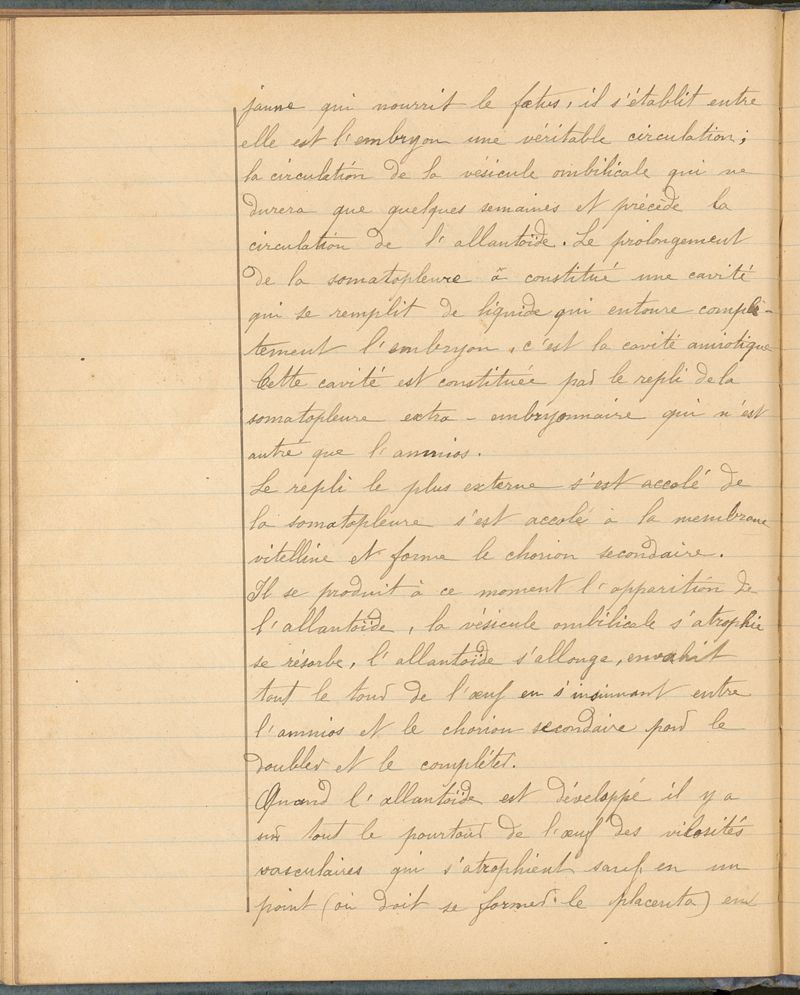 jaune qui nourrit le fœtus, il s'établit entre
elle est l'embryon une véritable circulation ;
la circulation de la vésicule ombilicale qui ne
durera que quelques semaines et précède la
circulation de l'allantoïde. Le prolongement
de la somatopleure a constitué une cavité
qui se remplit de liquide qui entoure complè-
tement l'embryon, c'est la cavité amiotique
Cette cavité est constituée par le repli de la
somatopleure extra-embryonnaire qui n'est
autre que l'amnios.
Le repli le plus externe s'est accolé de
la somatopleure s'est accolé à la membrane
vitelline et forme le chorion secondaire.
Il se produit à ce moment l'apparition de
l'allantoïde, la vésicule ombilicale s'atrophie
se résorbe, l'allantoïde s'allonge, envahit
tout le tour de l'œuf en s'insinuant entre
l'amnios et le chorion secondaire pour le
doubler et le compléter.
Quand l'allantoïde est développé il y a
sur tout le pourtour de l'œuf des vilosités
vasculaires qui s'atrophient sauf en un
point (où doit se former le placenta) en